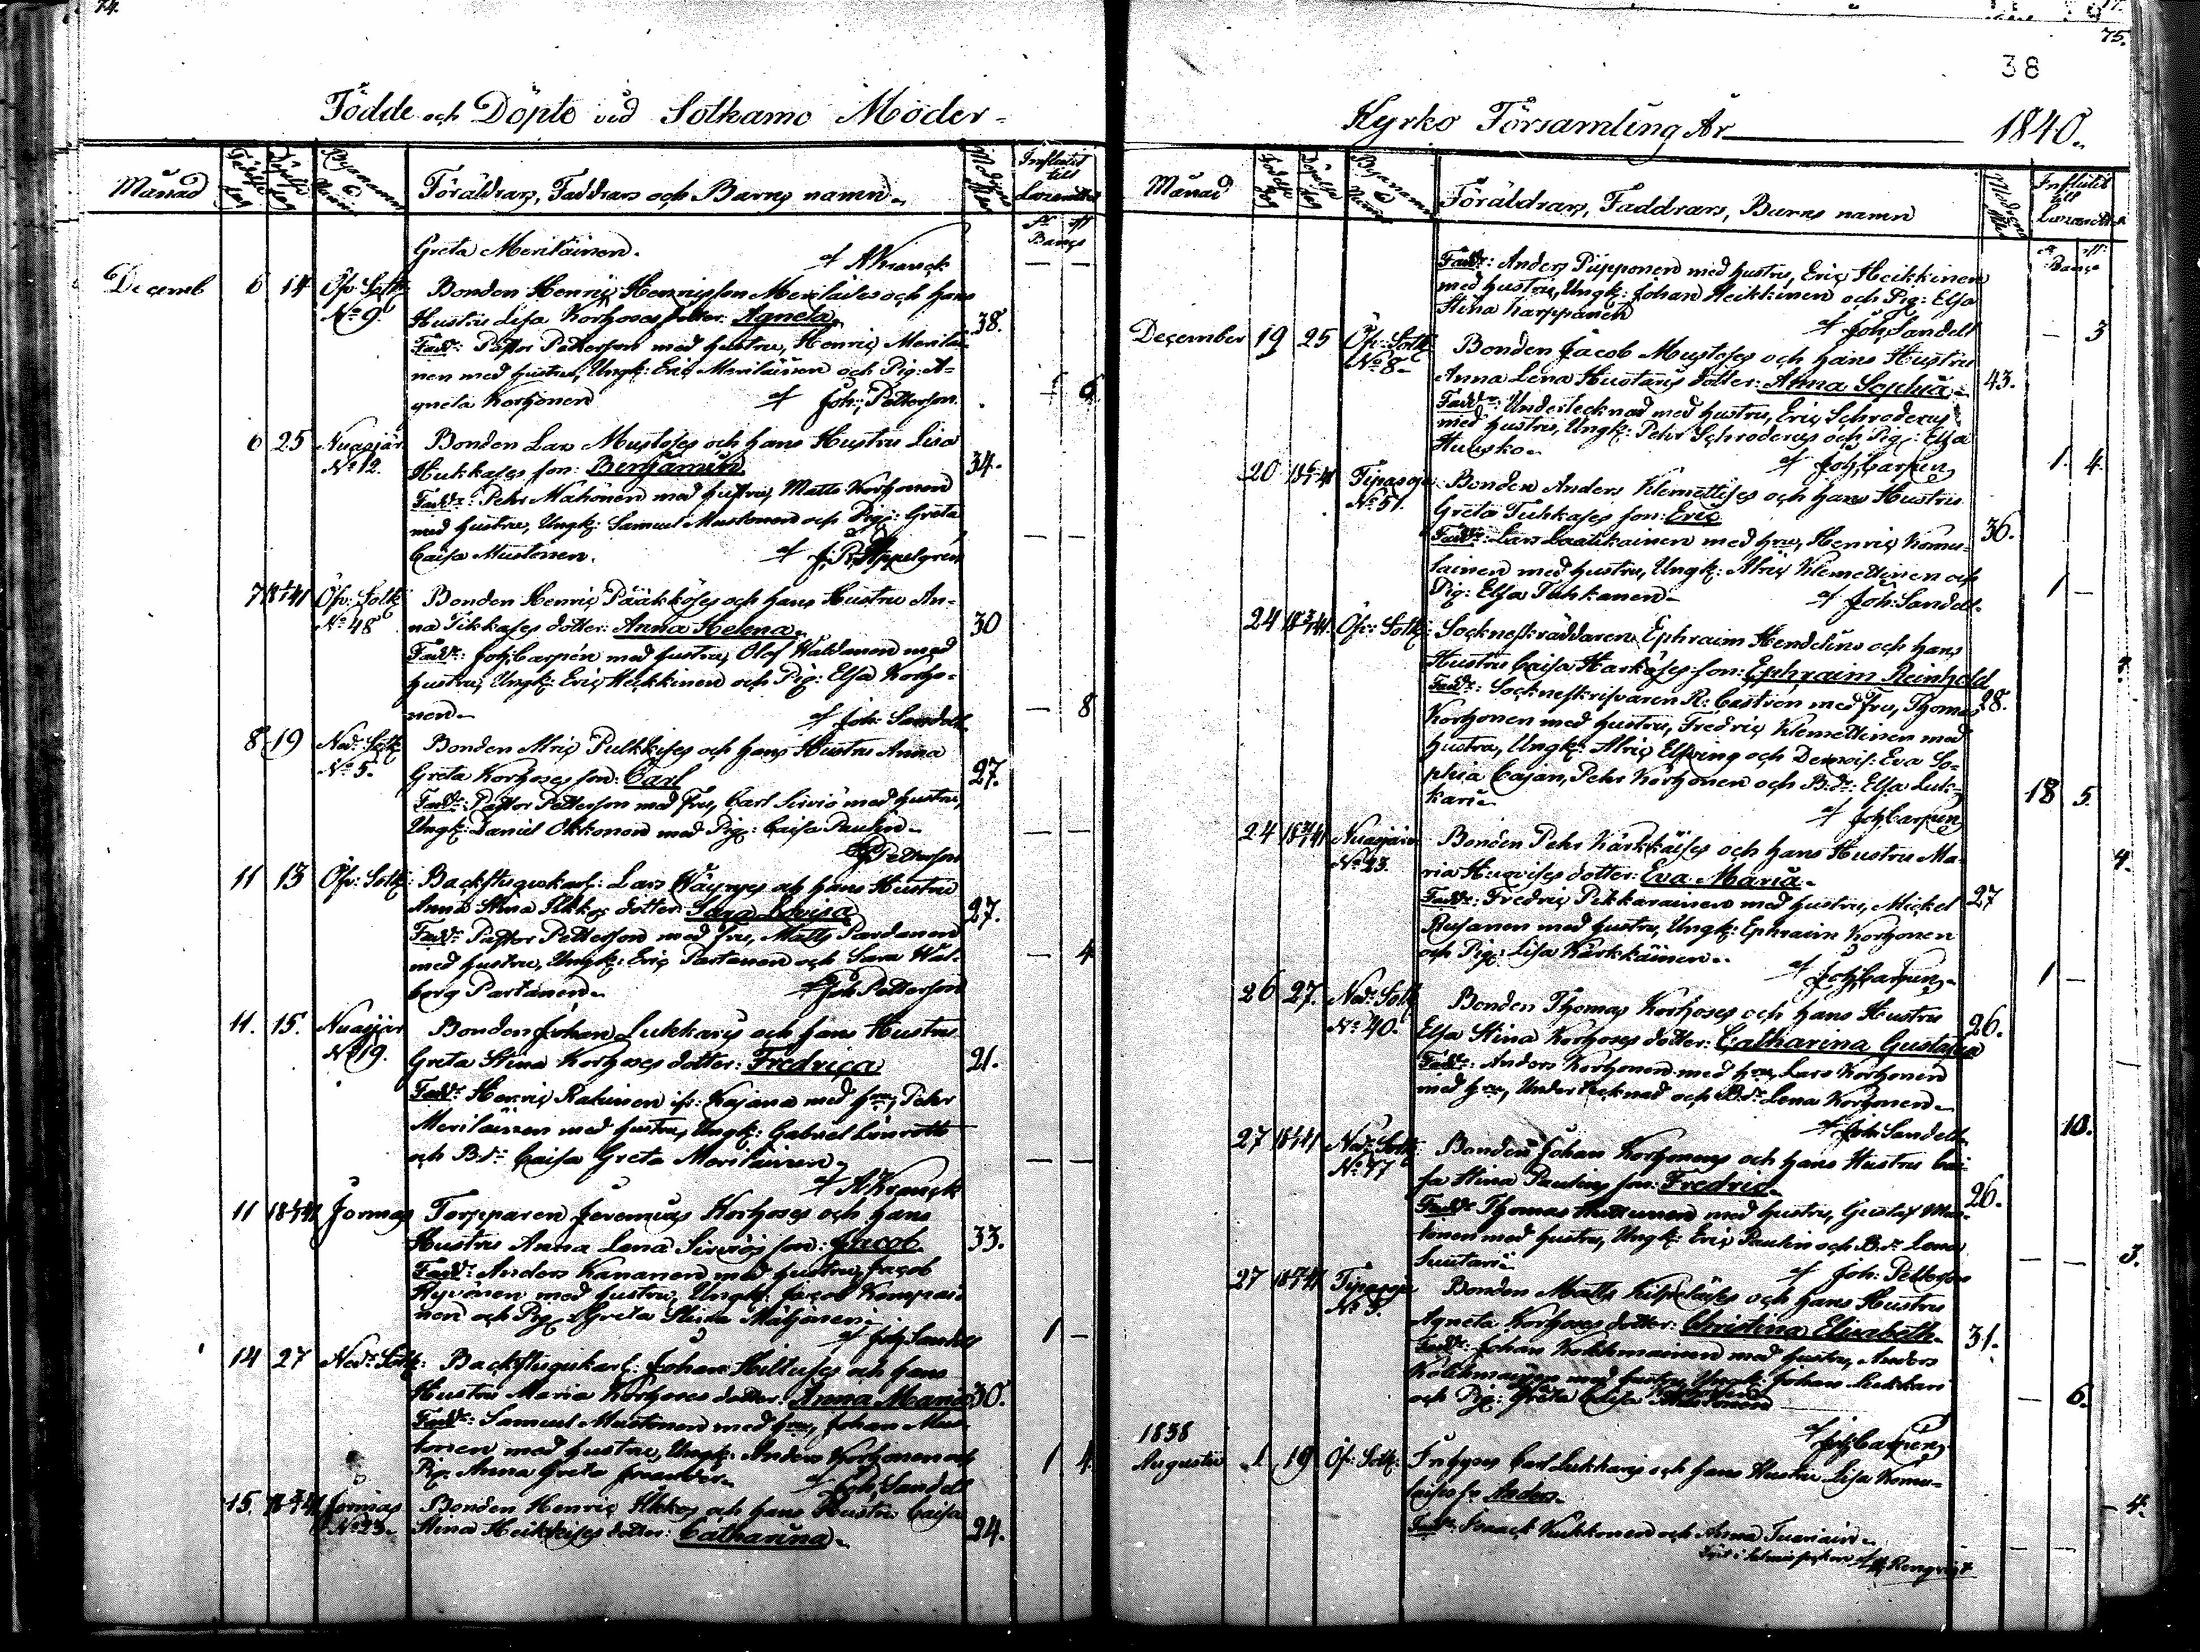 74.
Födde och Döpte vid Sotkamo Moder-
Månad
Födelse dag
Döpelse dag
Bynamn & Num
Föräldrars, Faddrars och Barns namn
Modrens ålder
Influtit till Lazarettet
Banco
Greta Meriläinen. af A Kranck
Decemb 6 14 Öfv: Sotk: Bonden Henric Henricsson Meriläises och hans
No 9. Hustru Lisa Korhoses dotter: Agneta 38.
Fadd: Pastor Petterson med hustru, Henric Meriläi-
nen med hustru, Ungk: Eric Meriläinen och Pig: A-
gneta Korhonen af Joh: Petterson. 6
6 25 Nuasjär Bonden Lars Mustoses och hans Hustru Lisa
No 12. Hukkases son: Benjamin 34.
Fadd: Pehr Mähönen med hustru, Matts Korhonen
med hustru, Ungk: Samuel Mustonen och Pig: Greta
Caisa Mustonen. af J: R: Appelgren
7 Öfv: Sotk: Bonden Henric Pääkköses och hans Hustru An-
No 48 na Tikkases dotter: Anna Helena 30
Fadd: Joh: Carpén med hustru, Olof Waldanen med
hustru, Ungk: Eric Heikkinen och Pig: Elsa Korho-
nen af Joh: Sandelt 8
8 19 Ned: Sotk: Bonden Alric Pulkkises och hans Hustru Anna
No 5. Greta Korhoses son: Carl 27.
Fadd: Pastor Petterson med Fru, Carl Sirviö med hustru,
Ungk: Daniel Okkonen med Pig: Caisa Paulin
Petterson
11 13 Öfv: Sotk: Backstugukarl: Lars Väyryses och hans Hustru
Anna Stina dotter: Sara Lovisa 27.
Fadd: Pastor Petterson med fru, Matts Pardanen
med hustru, Ungk: Eric Partanen och Sara Wal-
borg Partanen af Joh Petterson 4
11. 15. Nuasjär Bonden Johan Lukkaris och hans Hustru
No 19. Greta Stina Korhoses dotter: Fredrica 21.
Fadd: Henric Rahunen ifr: Kajana med hru, Pehr
Meriläinen med hustru, Ungk: Gabriel Lönroth
och B.dr Caisa Greta Meriläinen
af A Kranck
11 Jormas Torpparen Jeremias Korhoses och hans
Hustru Anna Lena Sirviös son: Jacob 33.
Fadd: Anders Kananen med hustru, Jacob
Hyvönen med hustru, Ungk: Jacob Kempai-
nen och Pig: Greta Stina Mähönen
af Joh: Sandelt 1
14 27 Ned: Sotk: Backstugukarl: Johan Hiltuses och hans
Hustru Maria Korhoses dotter: Anna Maria 30.
Fadd: Samuel Mustonen med hru, Johan Mus-
tonen med hustru, Ungk: Anders Korhonen och
Pig: Anna Greta af Joh: Sandelt 1 4
15. Jormas Bonden Henric och hans Hustru Caisa
No 23. Stina Heikkises dotter: Catharina 24.
75.
38
Kyrko Församling År 1840.
Månad
Födelse dag
Döpelse dag
Bynamn & Num
Föräldrars, Faddrars, Barns namn
Modrens ålder
Influtit till Lazarettet
Banco
Fadd: Anders Piipponen med hustru, Eric Heikkinen
med hustru, Ungk: Johan Heikkinen och Pig: Elsa
Stina Karppanen af Joh: Sandelt 3
December 19 25 Öfv: Sotk: Bonden Jacob Mustoses och hans Hustru
No 8 Anna Lena Hustaris dotter: Anna Sophia 43.
Fadd: Undertecknad med hustru, Eric Schroderus
med hustru, Ungk: Pehr Schroderus och Pig: Elsa
Huusko af Joh: Carpén 1. 4.
20 Tipasoja Bonden Anders Klemettises och hans Hustru
No 51. Greta Tuhkases son: Eric 36.
Fadd: Lars Laatikainen med hru, Henric Komu-
lainen med hustru, Ungk: Alric Klemettinen och
Pig: Elsa Tuhkanen af Joh: Sandelt 1
24 Öfv: Sotk: Sockneskräddaren Ephraim Hendelins och hans
Hustru Caisa Harkoses son: Ephraim Reinhold 28.
Fadd: Sockneskrifvaren R: Castrén med Fru, Thomas
Korhonen med hustru, Fredric Klemettinen med
hustru, Ungk: Alric Elfving och Demois: Eva So-
phia Cajan, Pehr Korhonen och B.dr: Elsa Luk-
kari af Joh: Carpén 18 5.
24 Nuasjär Bonden Pehr Kärkkäises och hans Hustru Ma-
No 23. ria dotter: Eva Maria 27
Fadd: Fredric Pikkarainen med hustru, Mickel
Rusanen med hustru, Ungk: Ephraim Korhonen
och Pig: Lisa Kärkkäinen af Joh: Carpén 1
26 27. Ned: Sotk: Bonden Thomas Korhoses och hans Hustru
No 40. Elsa Stina Korhoses dotter: Catharina Gustava 26.
Fadd: Anders Korhonen med hru, Lars Korhonen
med hru, Undertecknad och B.dr Lena Korhonen
af Joh: Sandelt 10.
27 Ned: Sotk: Bonden Johan Korhonens och hans Hustru Cai-
No 77 sa Stina Paulins son: Fredric 26.
Fadd: Thomas Huttunen med hustru, Gustaf Mus-
tonen med hustru, Ungk: Eric Paulin och B.dr Lena
Suutari af Joh: Petterson 3.
27 Tipasoja Bonden Matts Kilpeläises och hans Hustru
No 3. Agneta Korhoses dotter: Christina Elisabeth 31.
Fadd: Johan Kolehmainen med hustru, Anders
Kolehmainen med hustru, Ungk: Johan Lukkari
och Pig: Greta Caisa 6.
af Joh: Carpén
1838
Augustii 1 19 Öfv: Sotk: Carl Lukkaris och hans Hustru Lisa Komu-
laises sn Anders
Fadd: Isaack Kukkonen och Anna
Renqvist 4.